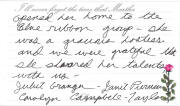 I'll never forget the time that Martha
opened her home to the
Blue ribbon group - she
was a gracious hostess
and we were grateful that
she shared her talents
with us -
Juliet Granger - Janie Freeman
Carolyn Campbell - Taylor